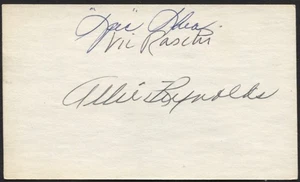 "Spec" Shea
Vic Raschi
Allie Reynolds